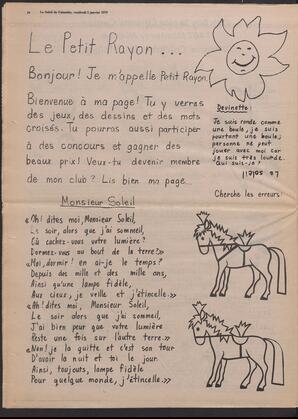 Le Soleil de Colombie, vendredi 5 janvier 1979
Le Petit Rayon ...
Bonjour! Je m'appelle Petit Rayon.
Bienvenue à ma page! Tu y verras
des jeux, des dessins et des mots
croisés. Tu pourras aussi participer
à des concours et gagner des
beaux prix! Veux-tu devenir membre
de mon club? Lis bien ma page...
Devinette:
Je suis ronde comme
une boule, je suis
pourtant une boule;
personne ne peut
jouer avec moi car
je suis très lourde.
Qui suis-je?
Le soleil!
Cherche les erreurs!
Monsieur Soleil
«Oh! dites moi, Monsieur Soleil,
Le soir, alors que j'ai sommeil,
Où cachez-vous votre lumière?
Dormez-vous au bout de la terre?»
«Moi, dormir! en ai-je le temps?
Depuis des mille et des mille ans,
Ainsi qu'une lampe fidèle,
Aux cieux, je veille et j'étincelle.»
«Ah! dites moi, Monsieur Soleil,
Le soir alors que j'ai sommeil,
J'ai bien peur que votre lumière
Reste une fois sur l'autre terre.»
«Non! je la quitte et c'est son tour
D'avoir la nuit et toi le jour.
Ainsi, toujours, lampe fidèle
Pour quelque monde, j'étincelle.»